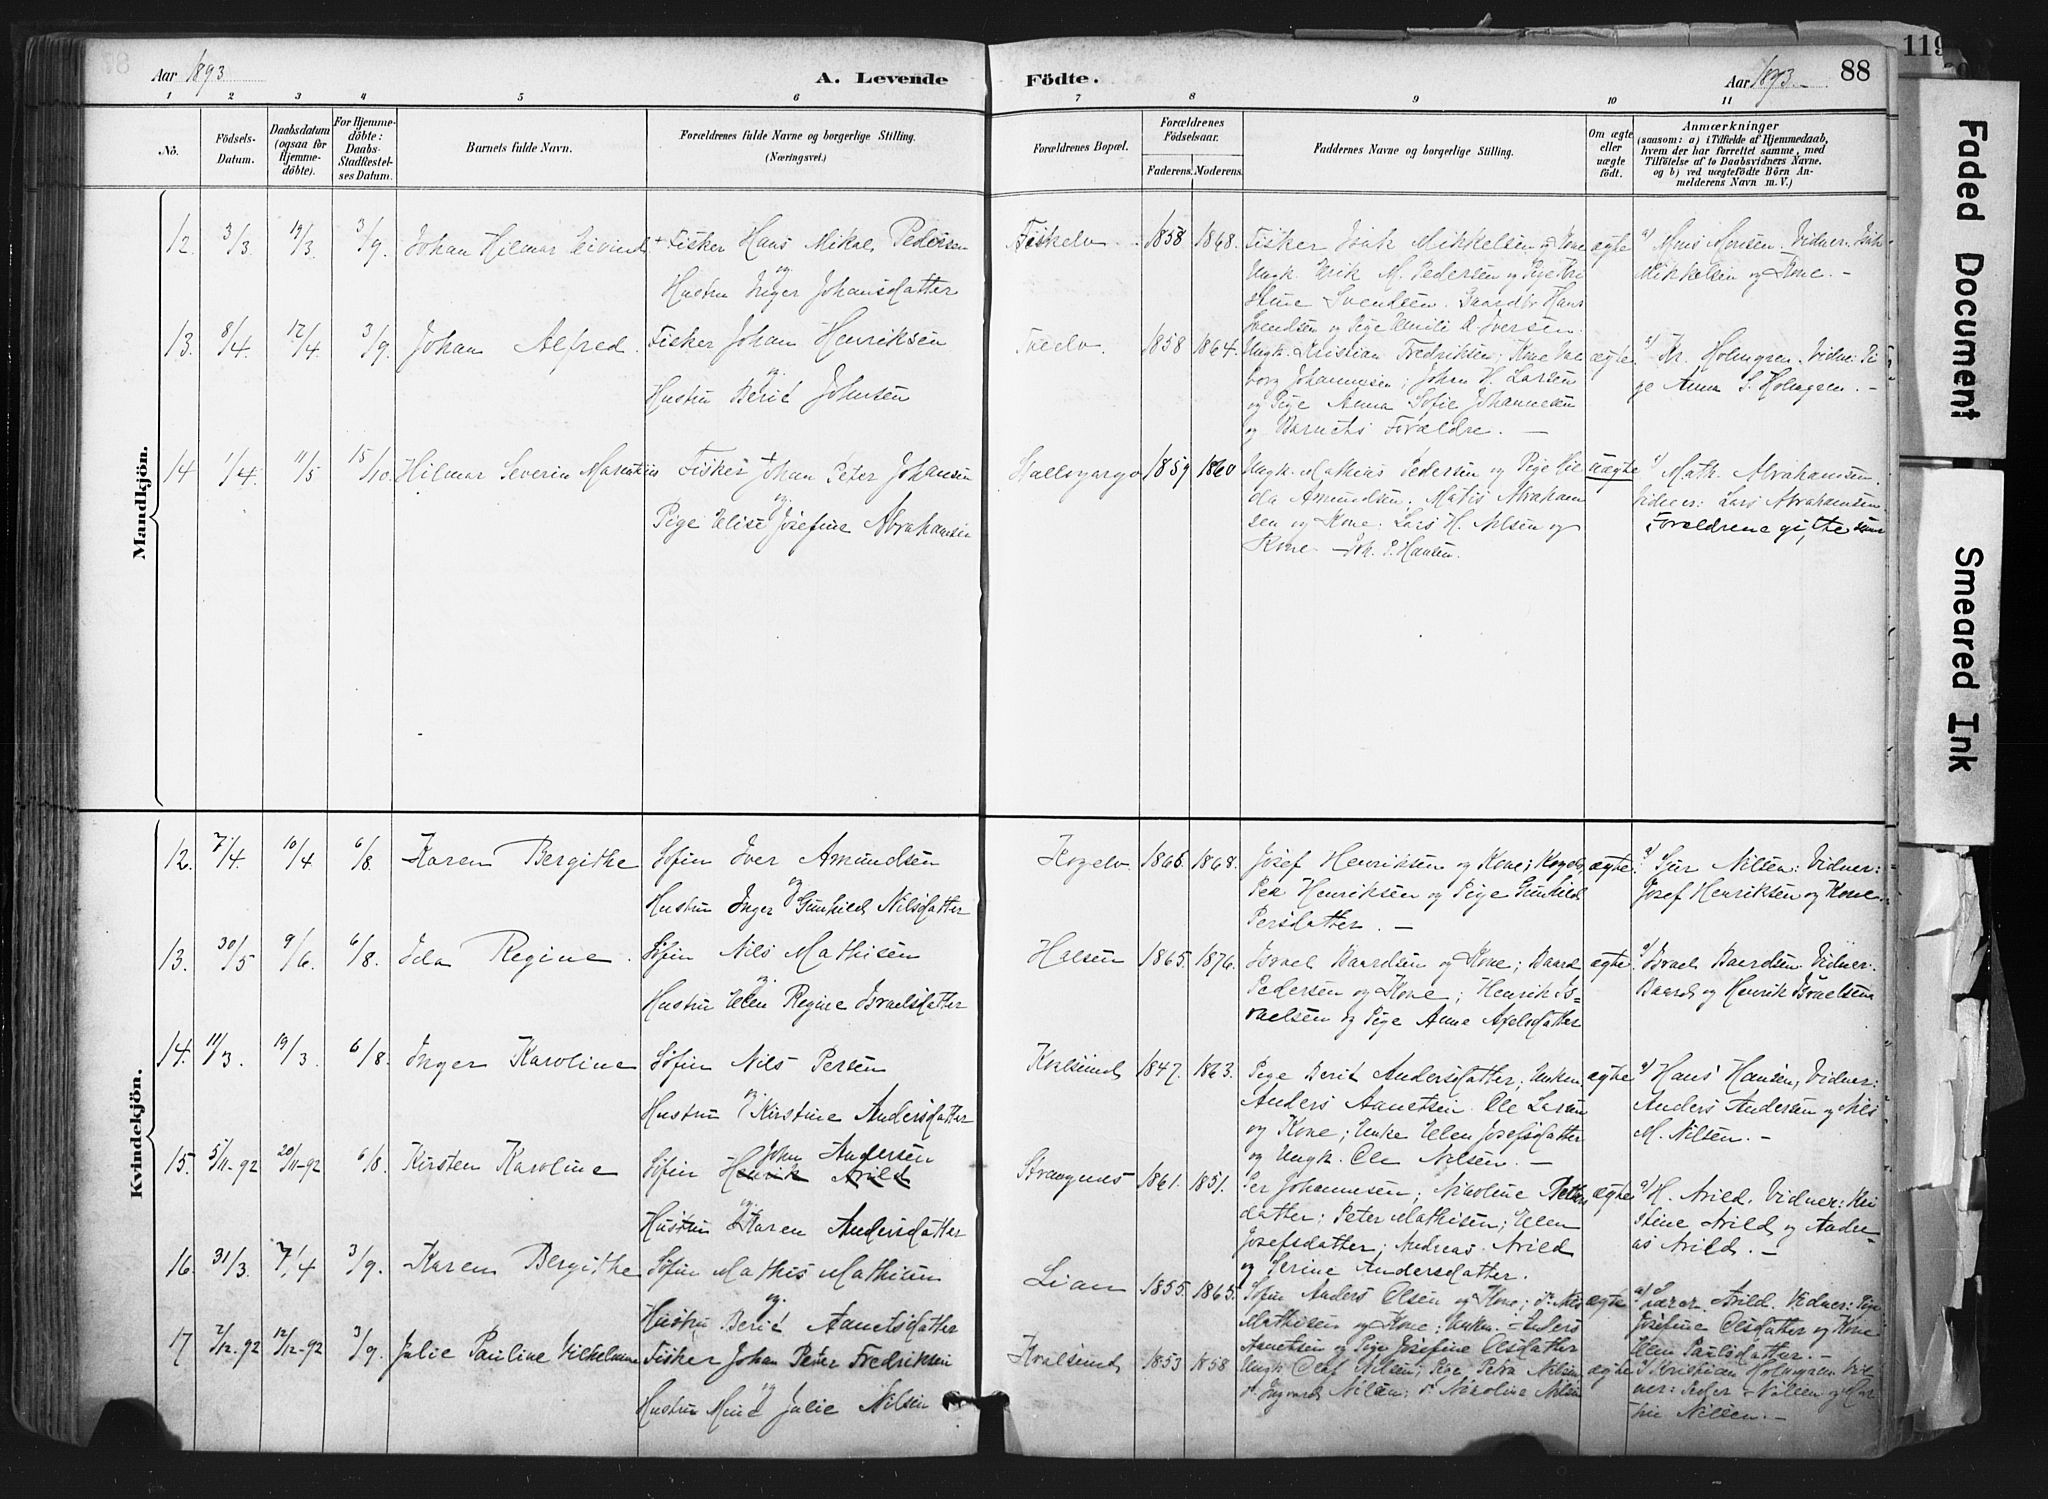 Aar 1893
A. Levende
Födte.
Aar 1893
88
119
1 2 3 4 5 6 7 8 9 10 11
No.
Födsels-Datum.
Daabsdatum (ogsaa for Hjemme-döbte).
For Hjemme-döbte: Daabs-Stadfæstel-ses Datum.
Barnets fulde Navn.
Forældrenes fulde Navne og borgerlige Stilling.
(Næringsvei.)
Forældrenes Bopæl.
Forældrenes Födselsaar.
Faderens. Moderens.
Faddernes Navne og borgerlige Stilling.
Om ægte eller uægte født.
Anmærkninger
(saasom: a) i Tilfælde af Hjemmedaab,
hvem der har forrettet samme, med
Tilföielse af to Daabsvidners Navne.
og b) ved uægtefödte Börn An-
melderens Navn m. V.)
Mandkjön.
12. 3/3 19/3 3/9. Johan Hilmar Eivind + Fisker Hans Mikal Pedersen
og
Hustru Inger Johansdatter
Fiskelv 1858 1868.
Fisker Isak Mikkelsen og Kone
Ungk. Erik M. Pedersen og Pige Kri
stine Svendsen. Gaardbr Hans
Svendsen og Pige Emili A. Iversen.
ægte
a) Mons Monsen. Vidner: Isak
Mikkelsen og Kone. -
13. 8/4 12/4 3/9. Johan Alfred. Fisker Johan Henriksen
og
Hustru Berit Johnsen
1858 1864.
Ungk. Kristian Fredriksen; Kone Val
borg Johannesen; Johan H. Larsen
og Pige Anna Sofie Johannesen
og Barnets Forældre. -
ægte
a) Kr. Holmgren. Vidne: Pi
ge Anna S. Holmgren. -
14 1/4 11/5 15/10. Hilmar Severin Fisker Johan Peter Johansen
og
Pige Elise Josefine Abrahamsen
1859 1860
Ungk. Mathias Pedersen og Pige
da Amundsen. Matis Abraham
sen og Kone. Lars H. Nilsen og
Kone. - Joh. P. Hansen.
uægte
a) Math. Abrahamsen.
Vidner: Lars Abrahamsen.
Forældrene gifte
Kvindekjön.
12. 7/4 10/4 6/8. Karen Bergithe Søfin Iver Amundsen
og
Hustru Inger Gunhild Nilsdatter
1868.
Josef Henriksen og Kone;
Per Henriksen og Pige Gunhild
Persdatter. -
ægte.
a) Sjur Nilsen: Vidner:
Josef Henriksen og Kone.
13. 30/5 9/6. 6/8. Ida Regine. Søfin Nils Mathisen
og
Hustru Elen Regine Israelsdatter
1865. 1876.
Israel Baardsen og Kone; Baard
Pedersen og Kone; Henrik Is-
raelsen og Pige Anne Axelsdatter
ægte
a) Israel Baardsen. Vidner:
Baard og Henrik Israelsen
14. 11/3. 19/3. 6/8. Inger Karoline Søfin Nils Persen
og
Hustru Kirstine Andersdatter
Kvalsund 1847. 1863.
Pige Berit Andersdatter; Unkm.
Anders Aanetsen. Ole Larsen
og Kone; Enke Elen Josefsdatter
og Ungk. Ole Nilsen. -
ægte
a) Hans Hansen, Vidner:
Anders Andersen og Nils
M. Nilsen. -
15. 5/11-92 20/11-92 6/8. Kirsten Karoline Søfin Henrik Arild
John Andersen
og
Hustru Karen Andersdatter
Strangnes 1861. 1851.
Per Johannesen; Nikoline Peters
datter; Peter Mathisen; Elen
Josefsdatter; Andreas Arild
og Serine Andersdatter.
ægte
a) H. Arild. Vidner: Kri
stine Arild og Andre-
as Arild. -
16. 31/3. 7/4 3/9. Karen Bergithe Søfin Mathis Mathisen
og
Hustru Berit Aanetsdatter
Lian 1855. 1865.
Søfin Anders Olsen og Kone; Nils
Mathisen og Kone; Unkm. Anders
Aanetsen og Pige Josefine Olsdatter
ægte
a) Lærer Arild. Vidner: Pige
Josefine Olsdatter og Kone
Elen Paulsdatter. -
17 2/12-92 12/12-92 3/9. Julie Pauline Vilhelmine Fisker Johan Peter Fredriksen
og
Hustru Julie Nilsen
Kvalsund 1853 1858
Ungk. Olaf Nilsen; Pige Petra Nilsen
Ingvard Nilsen; Nikoline Nilsen
ægte
a) Kristian Holmgren. Vid
ner: Peder Nilsen og
Nilsen. -
Faded Document
Smeared Ink